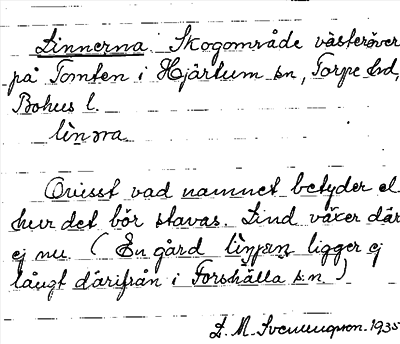 Linnerna. Skogområde västeröver
på Tomten i Hjärtum sn, Torpe hd,
Bohus l.
Ovisst vad namnet betyder el.
hur det bör stavas. Lind växer där
ej nu. (En gård ligger ej
långt därifrån i Forshälla sn.)
1935